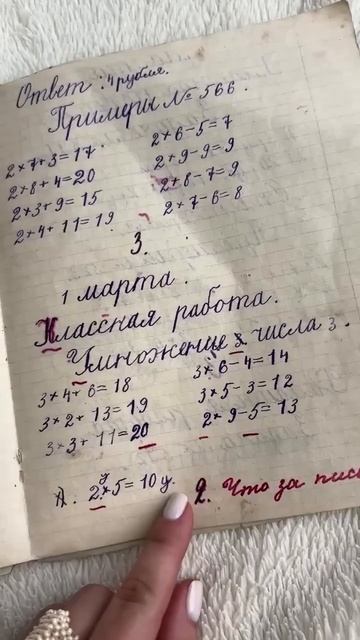 Ответ: 4 рубля.
Примеры № 566.
2×7+3=17
2×8+4=20
2×3+9=15
2×4+11=19
2×6-5=7
2×9-9=9
2×8-7=9
2×7-6=8
3.
1 марта.
Классная работа.
Умножение числа 3.
3×4+6=18
3×2+13=19
3×3+11=20
3×6-4=14
3×5-3=12
2×9-5=13
А. 2×5=10 у.
2. Что за